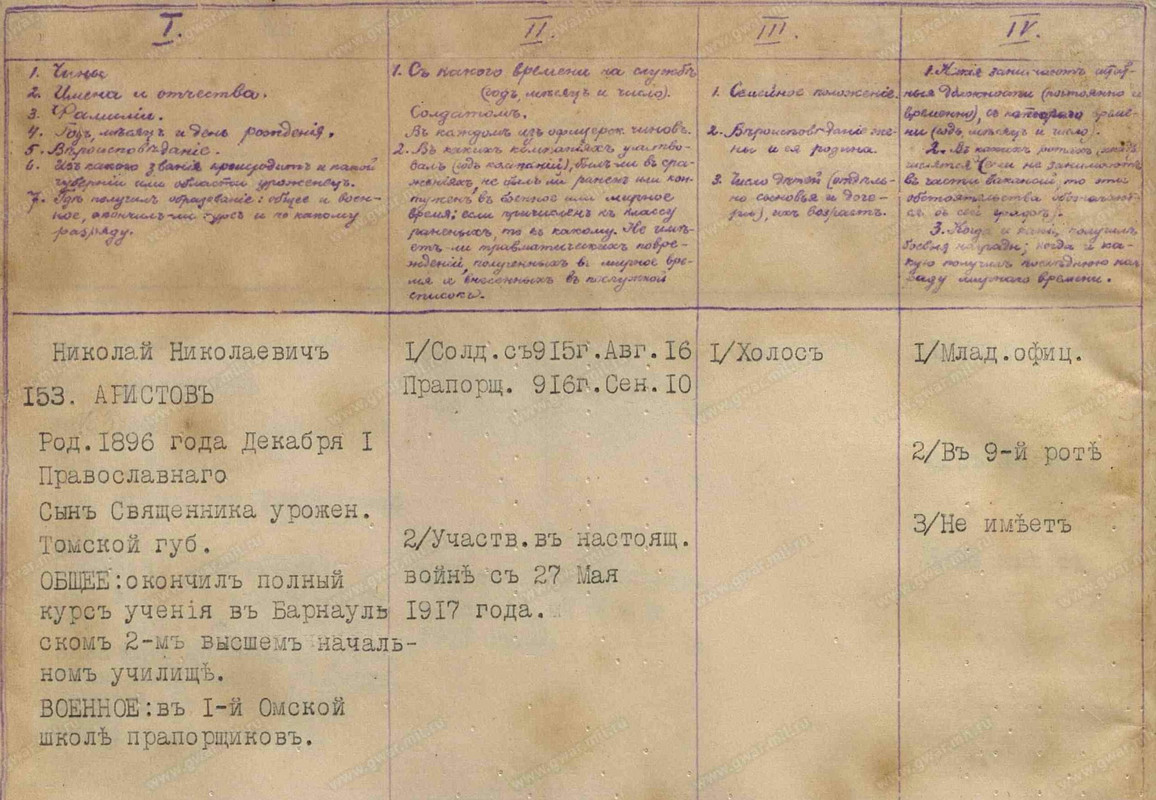 I.
1. Чины
2. Имена и отчества.
3. Фамилии.
4. Годъ, мѣсяцъ и день рожденія.
5. Вѣроисповѣданіе.
6. Изъ какого званія происходитъ и какой
губерніи или области уроженецъ.
7. Гдѣ получилъ образованіе: общее и воен-
ное, окончилъ-ли курсъ и по какому
разряду.
II.
1. Съ какого времени на службѣ
(годъ, мѣсяцъ и число).
Солдатомъ.
Въ каждомъ изъ офицерск. чиновъ.
2. Въ какихъ кампаніяхъ участво-
валъ (годъ кампаній), былъ ли въ сра-
женіяхъ, не былъ ли раненъ или кон-
туженъ въ военное или мирное
время; если причисленъ къ классу
раненыхъ, то къ какому. Не имѣ-
етъ-ли травматическихъ повре-
жденій, полученныхъ въ мирное вре-
мя и внесенныхъ въ послужной
списокъ.
III.
1. Семейное положеніе.
2. Вѣроисповѣданіе же-
ны и ея родина.
3. Число дѣтей (отдѣль-
но сыновья и доче-
ри), ихъ возрастъ.
IV.
1. Какія занимаютъ штат-
ныя должности (постоянно и
временно), съ котораго време-
ни (годъ, мѣсяцъ и число).
2. Въ какихъ ротахъ
числятся (если не занимаютъ
въ части вакансій, то эти
обстоятельства
въ сей графѣ).
3. Когда и какія получилъ
боевыя награды; когда и ка-
кую получилъ послѣднюю наг-
раду мирнаго времени.
Николай Николаевичъ
153. АРИСТОВЪ
Род.1896 года Декабря I
Православнаго
Сынъ Священника урожен.
Томской губ.
ОБЩЕЕ:окончилъ полный
курсъ ученія въ Барнауль
скомъ 2-мъ высшемъ началь-
номъ училищѣ.
ВОЕННОЕ:въ I-й Омской
школѣ прапорщиковъ.
I/Солд.съ915г.Авг.16
Прапорщ. 916г.Сен.10
2/Участв.въ настоящ.
войнѣ съ 27 Мая
1917 года.
I/Холосъ
I/Млад.офиц.
2/Въ 9-й ротѣ
3/Не имѣетъ
www.gwar.mil.ru